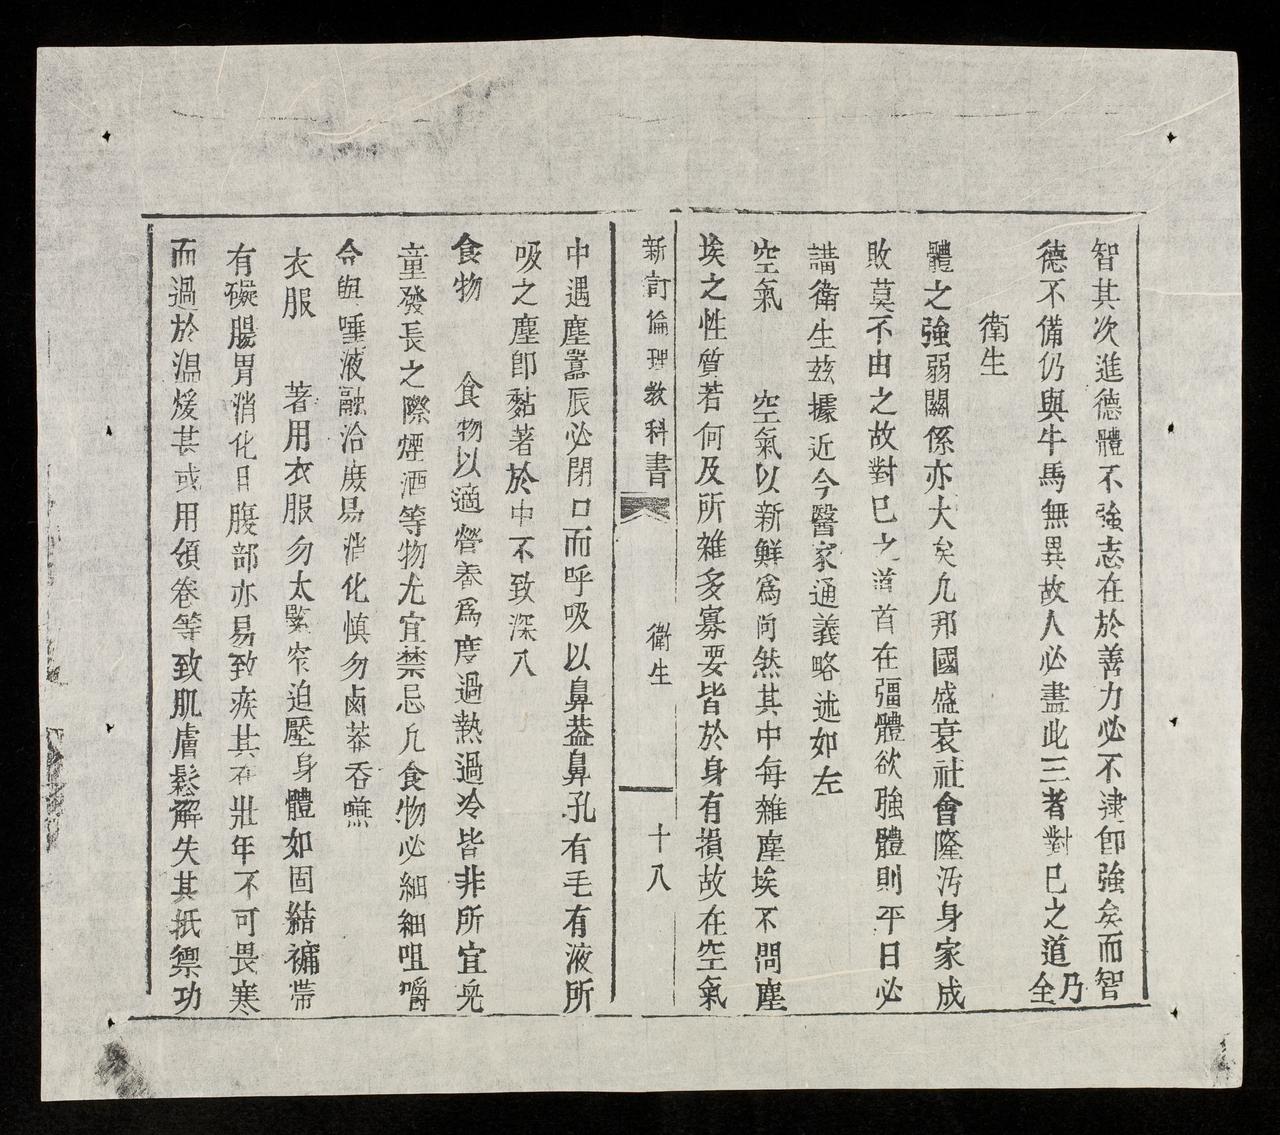 智其次進德體不強志在於善力必不逮卽強矣而智
德不備仍與牛馬無異故人必盡此三者對己之道乃全
衛生
體之強弱關係亦大矣凡邦國盛衰社會隆汚身家成
敗莫不由之故對己之道首在彊體欲強體則平日必
講衛生茲據近今醫家通義略述如左
空氣　空氣以新鮮爲尚然其中每雜塵埃不問塵
埃之性質若何及所雜多寡要皆於身有損故在空氣
新訂倫理教科書　衛生　十八
中遇塵囂辰必閉口而呼吸以鼻葢鼻孔有毛有液所
吸之塵卽黏著於中不致深入
食物　食物以適營養爲度過熱過冷皆非所宜兒
童發長之際煙酒等物尤宜禁忌凡食物必細細咀嚼
令與唾液融洽庶易消化慎勿鹵莽吞嚥
衣服　著用衣服勿太緊窄迫壓身體如固結褲帶
有礙腸胃消化目腹部亦易致疾其在壯年不可畏寒
而過於温煖甚或用領卷等致肌膚鬆解失其抵禦功